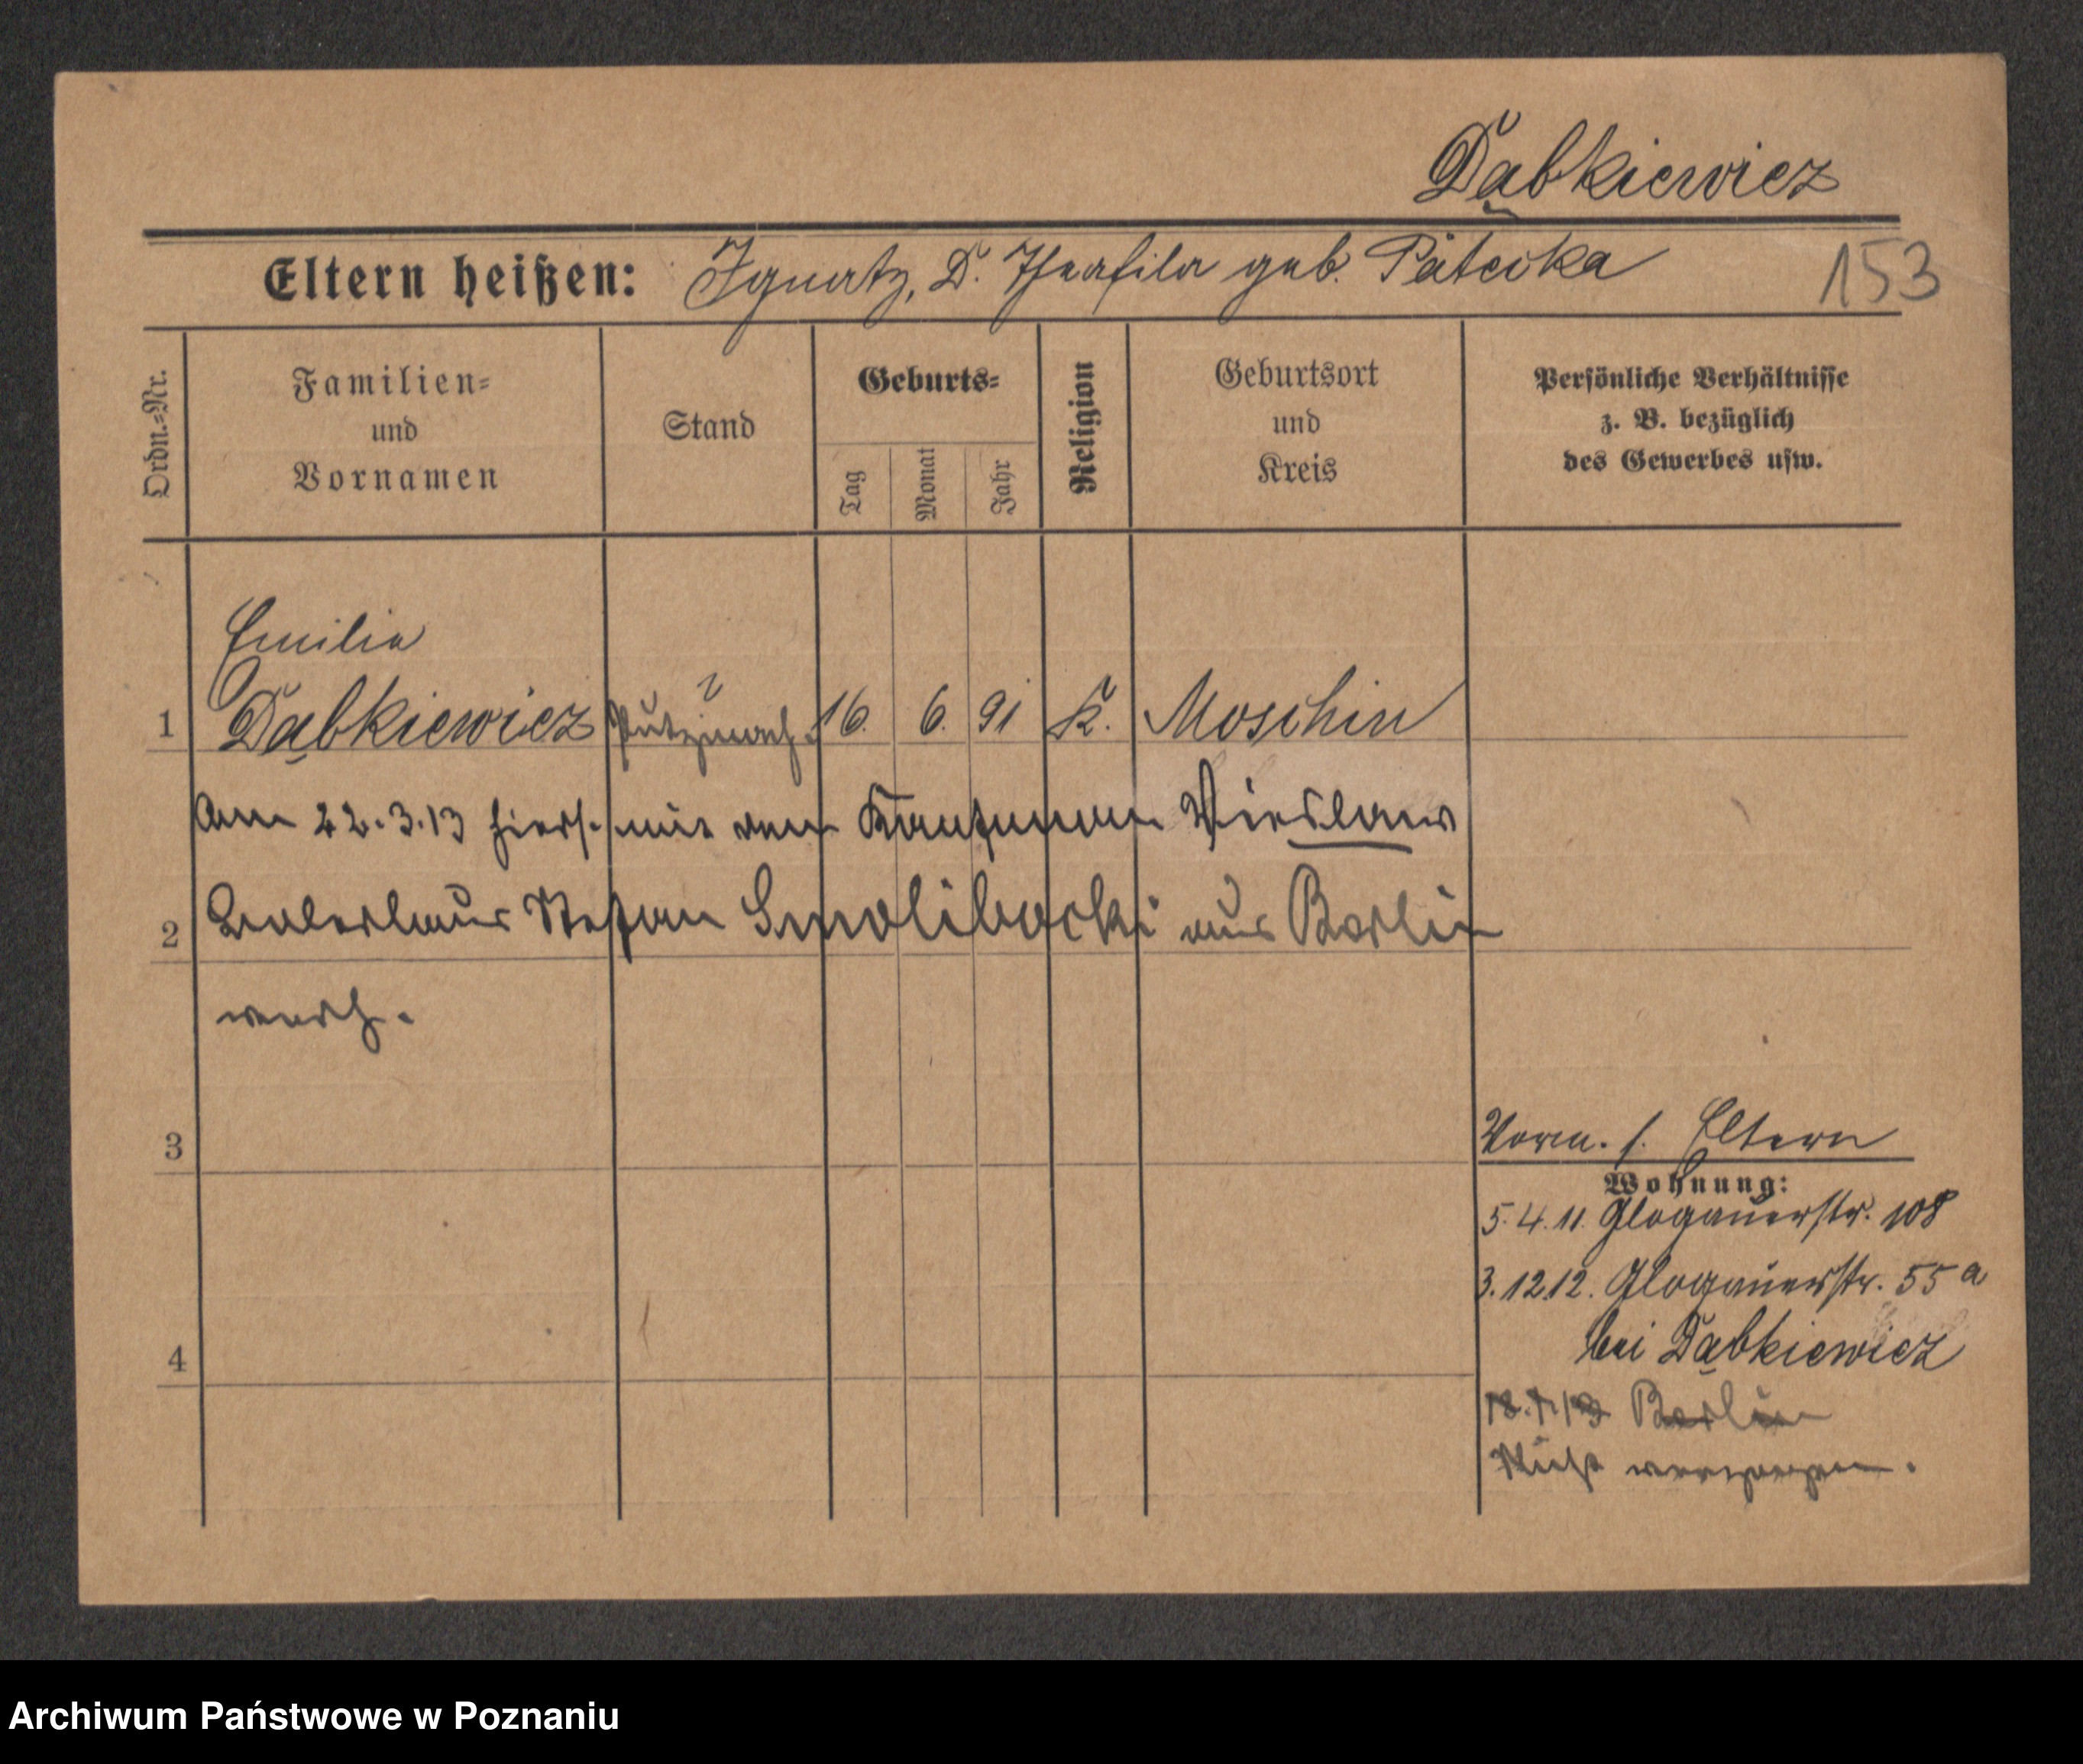 Dąbkiewicz
Eltern heißen: Ignatz, D. Theofila geb. Patecka
153
Ordn.=Nr.
Familien=
und
Vornamen
Stand
Geburts=
Tag
Monat
Jahr
Religion
Geburtsort
und
Kreis
Persönliche Verhältnisse
z. B. bezüglich
des Gewerbes usw.
Emilie
1 Dąbkiewicz Putzmach. 16. 6. 91 K. Moschin
Am 22.3.13 hiers. mit dem Kaufmann Wieslaus
2 Ladislaus Stefan Smolibocki aus Berlin
verh.
3
Vorm. s. Eltern
Wohnung:
5.4.11. Glogauerstr. 108
3.12.12. Glogauerstr. 55a
bei Dąbkiewicz
4
Berlin
verzogen.
Archiwum Państwowe w Poznaniu